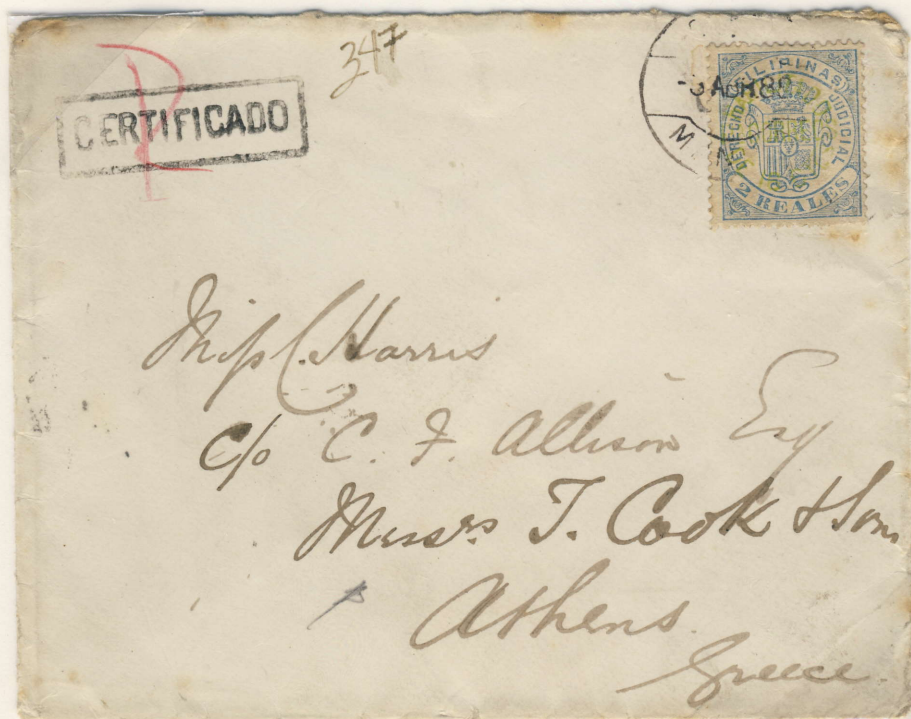 347
R
CERTIFICADO
3 ABR 8
MANI
FILIPINAS
DERECHO JUDICIAL
2 REALES
Miss C. Harris
c/o C. F. Allison Esq
Messrs T. Cook & Son
Athens
Greece